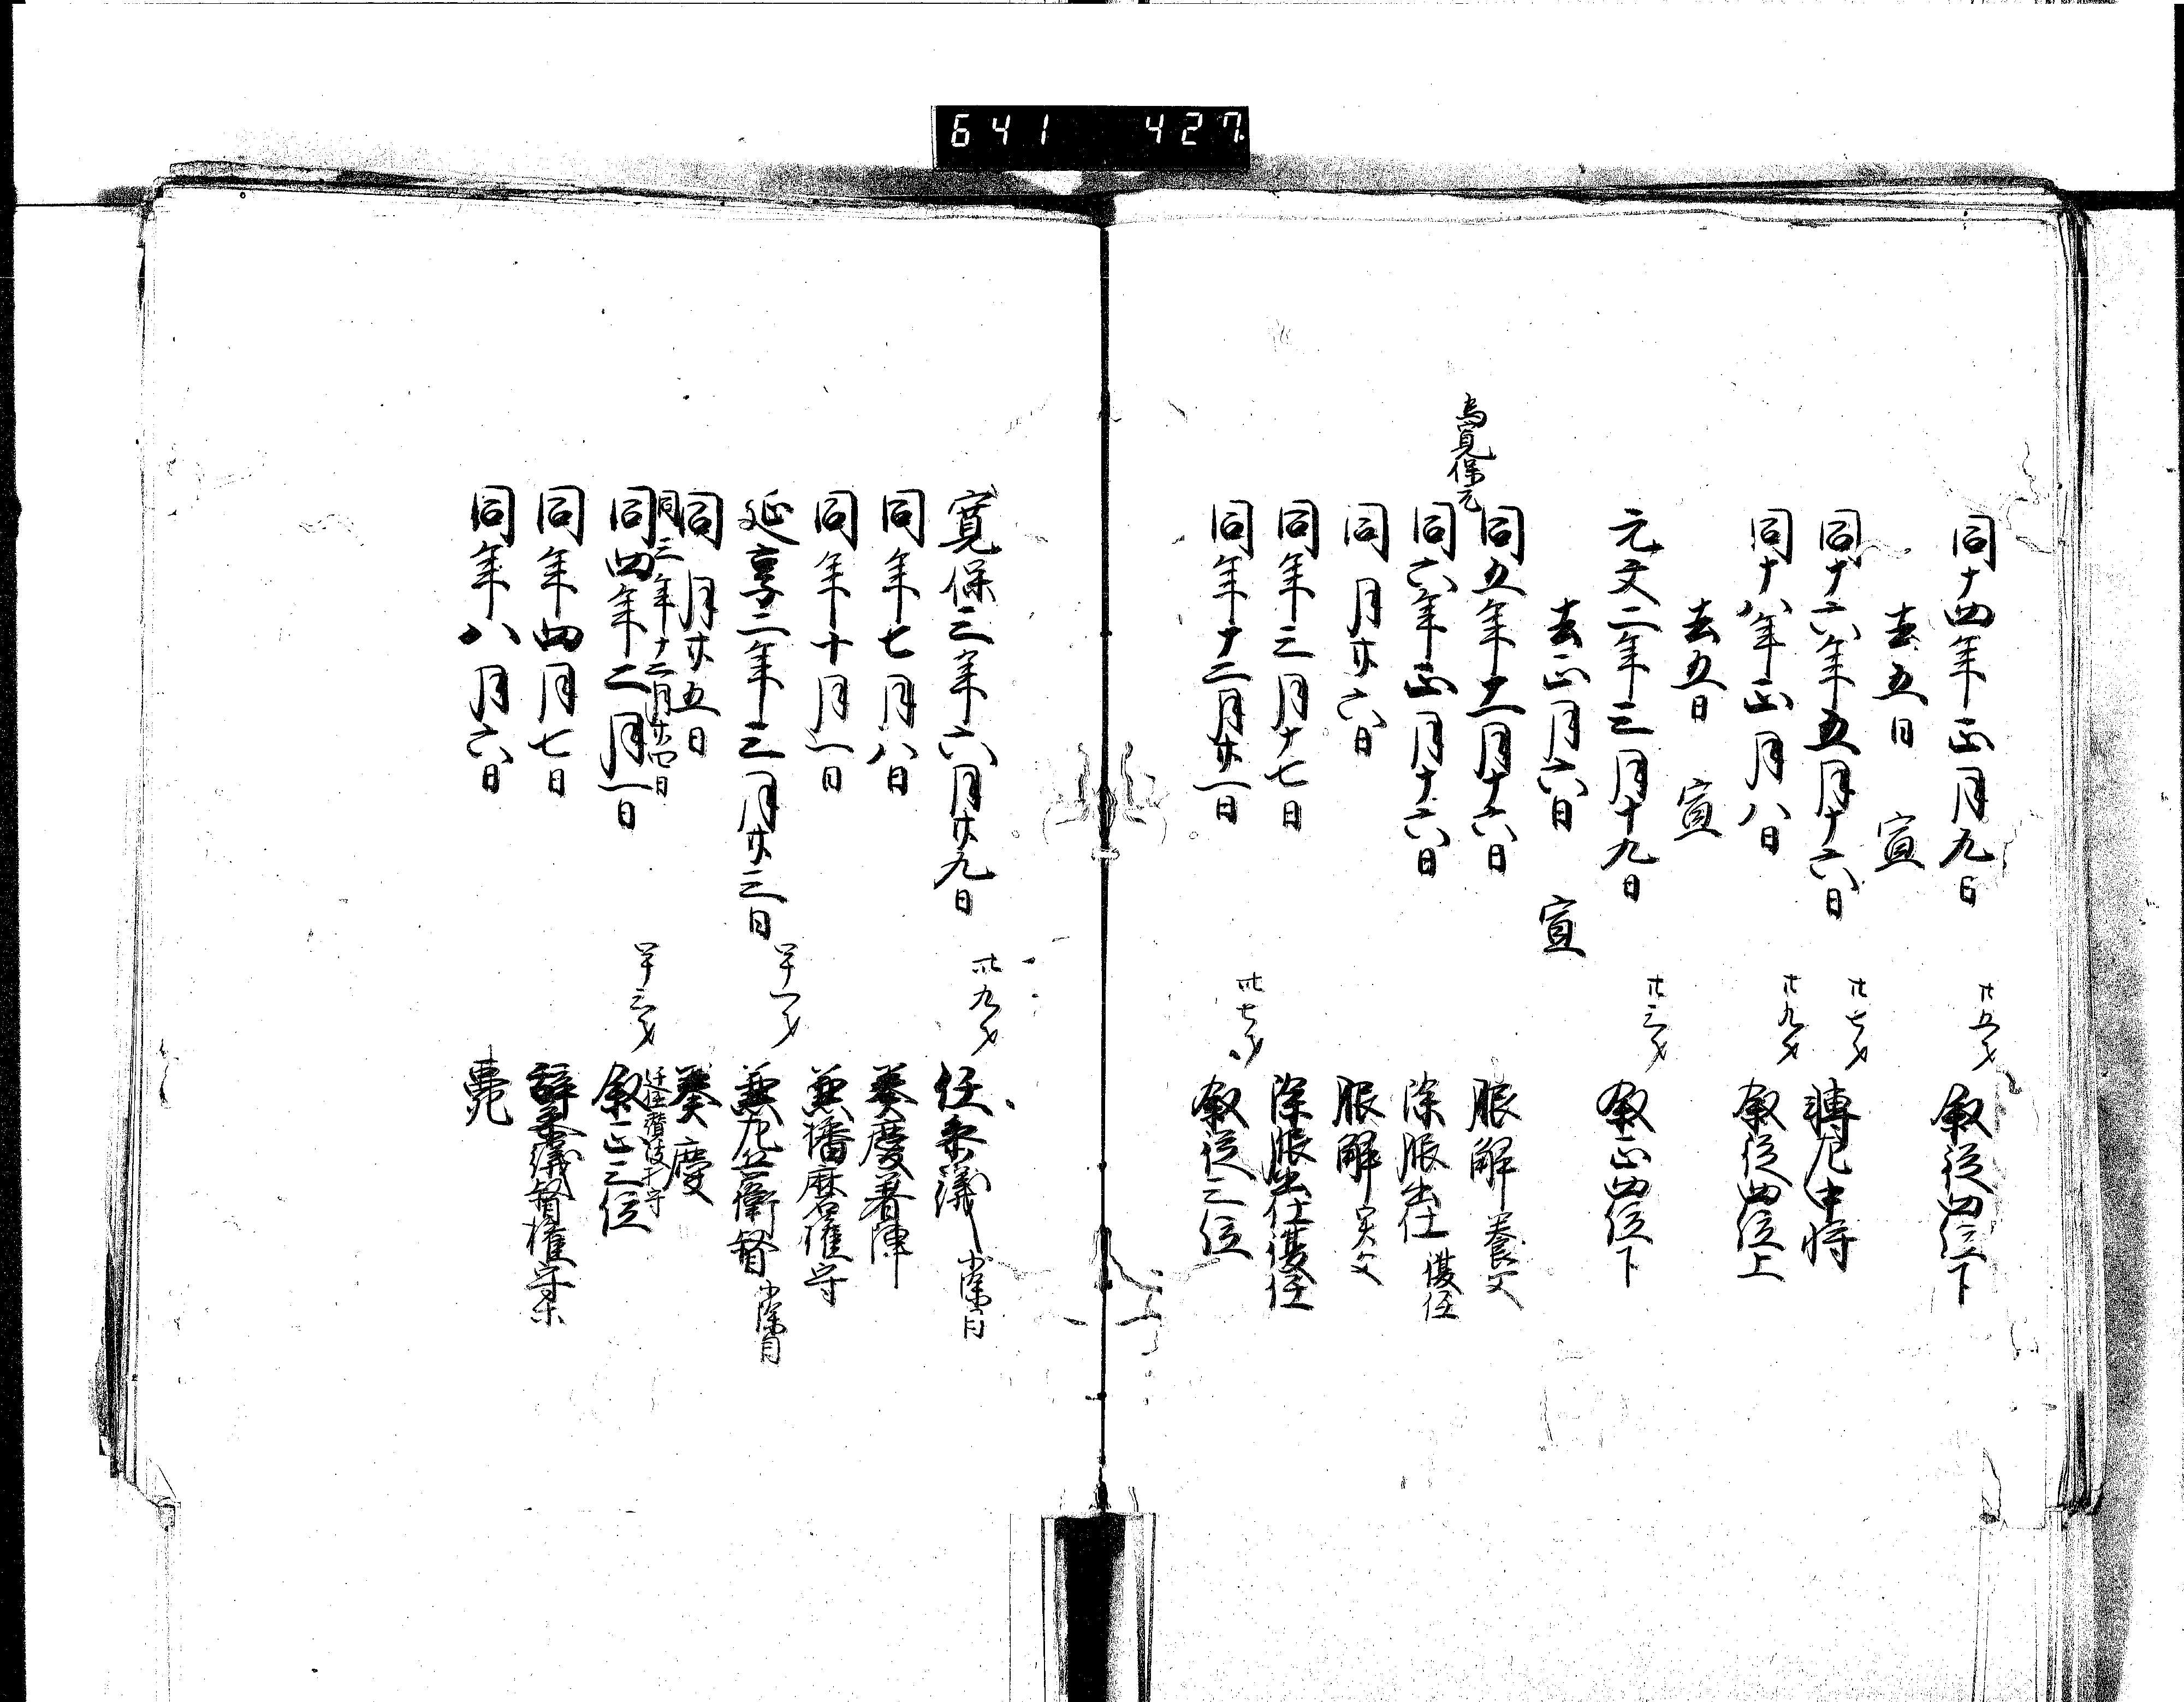 641 427
同十四年正月九日 廿五才 叙従四位下
去五日 宣
同十六年五月十六日 廿七才 轉左中将
同十八年正月八日 廿九才 叙従四位上
去五日 宣
元文二年三月十九日 卅三才 叙正四位下
去正月六日 宣
同五年十一月十六日 服解 養父
為寛保元
同六年正月十六日 除服出仕 復任
同月廿六日 服解 実父
同年三月十七日 除服出仕復任
同年十二月廿一日 卅七才 叙従三位
寛保三年六月廿九日 卅九才 任参議 小除目
同年七月八日 奏慶着陣
同年十月一日 兼播磨権守
延享二年三月廿三日 四十一才 兼左兵衛督 小除目
同月廿五日 奏慶
同三年十二月廿四日 迁任 権守
同四年二月一日 四十三才 叙正三位
同年四月七日 辞参議督権守等
同年八月六日 薨